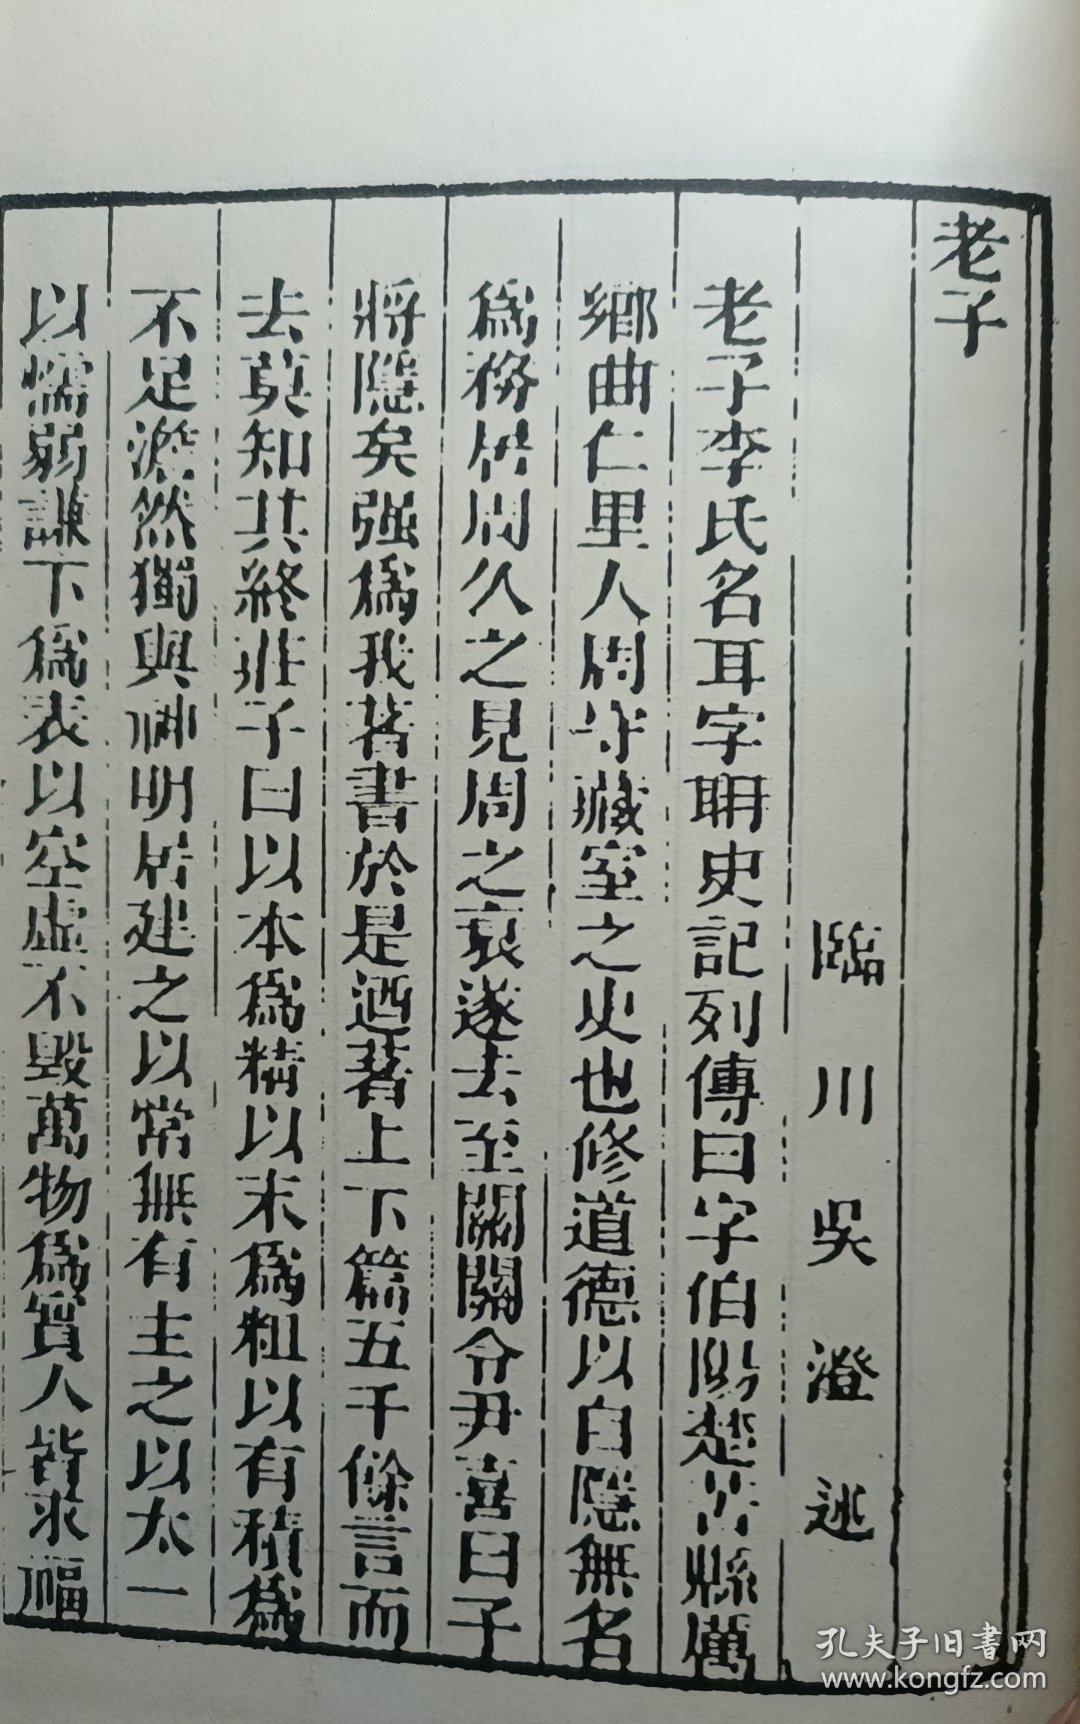 老子
臨川吳澄述
老子李氏名耳字聃史記列傳曰字伯陽楚苦縣厲
鄉曲仁里人周守藏室之史也修道德以自隱無名
爲務居周久之見周之衰遂去至關關令尹喜曰子
將隱矣强爲我著書於是迺著上下篇五千餘言而
去莫知其終莊子曰以本爲精以末爲粗以有積爲
不足澹然獨與神明居建之以常無有主之以太一
以懦弱謙下爲表以空虛不毀萬物爲實人皆求福
孔夫子旧書网
www.kongfz.com